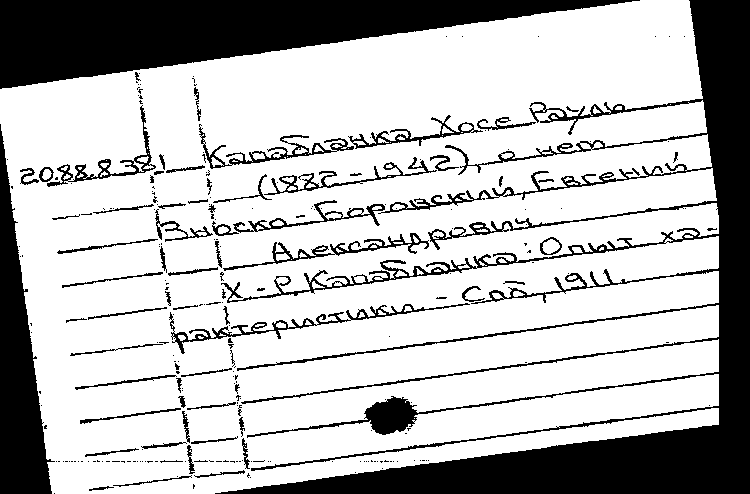 20.88.8.381 Капабланка, Хосе Рауль
(1882-1942), о нем
Зноско-Боровский, Евгений
Александрович
Х.-Р. Капабланка: Опыт ха-
рактеристики. - Спб, 1911.